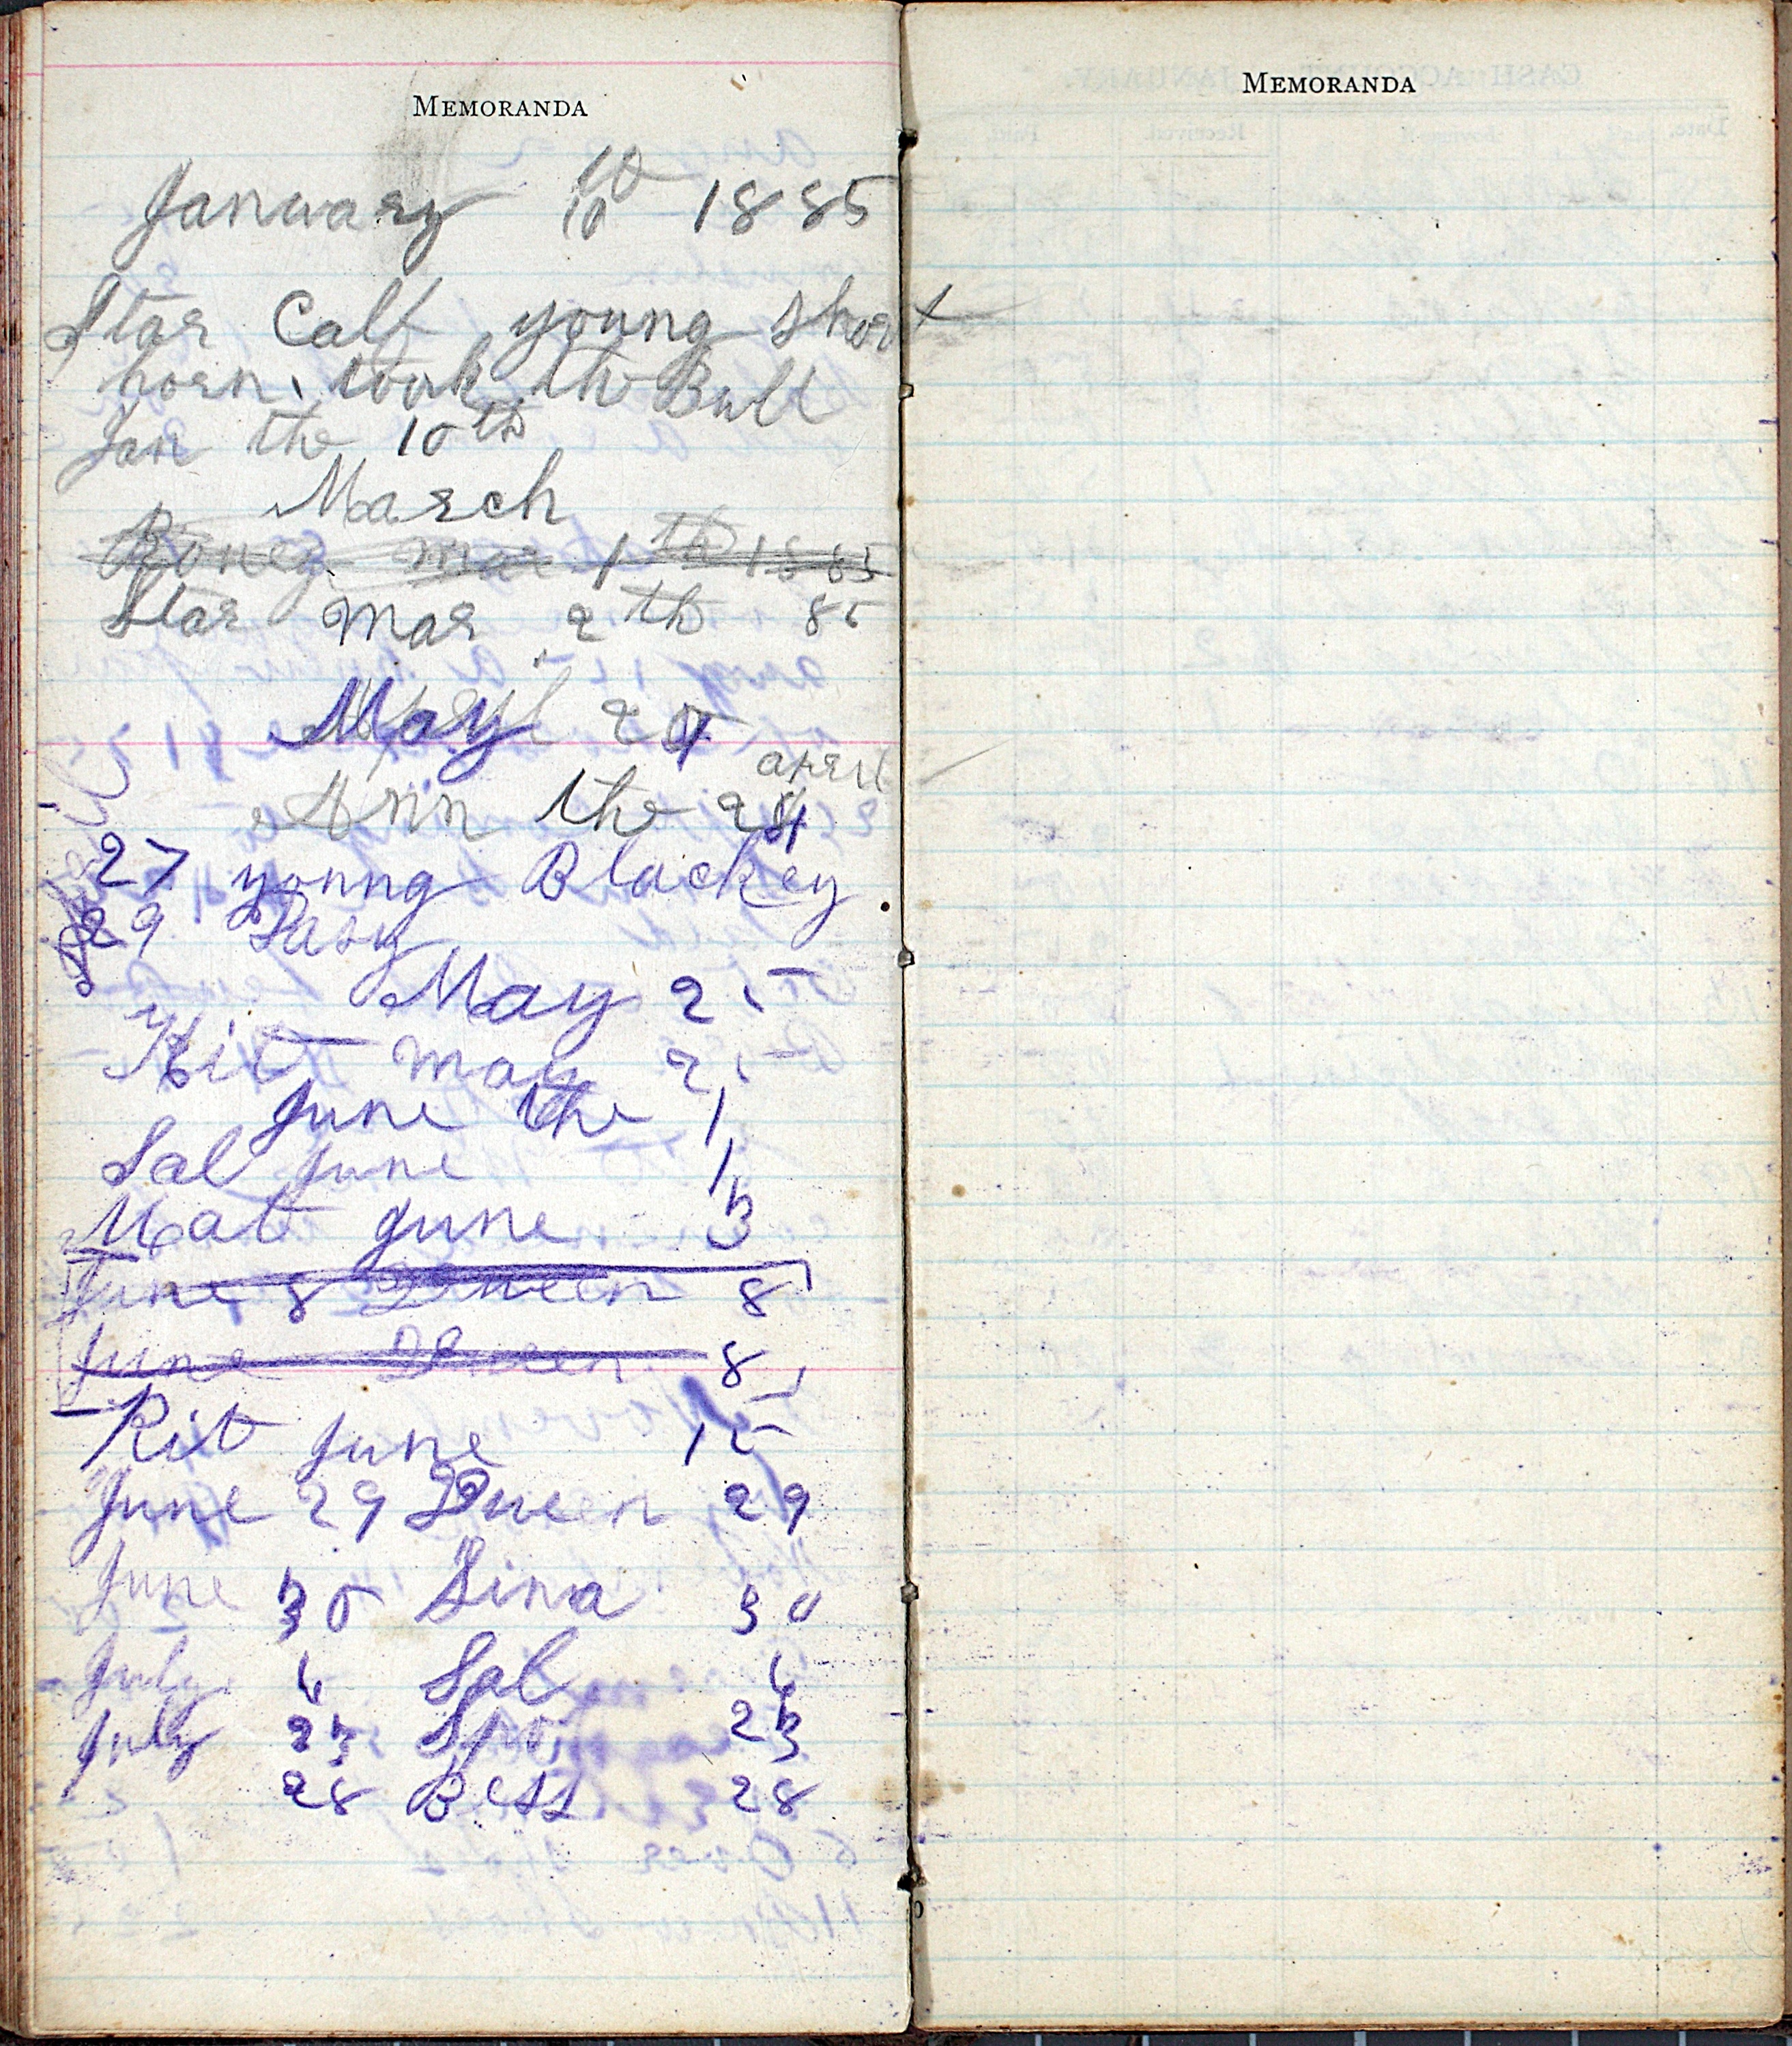 MEMORANDA
January 10th 1885
Star Calf young short
horn. took the Bull
Jan the 10th
March
Roney mar 1th 1885
Star mar 2th 85
May 2
april
Ann the 2
27 young Blackey
29 Dasy
May 25
Kit may 25
June the 1
Sal June 1
Mat June 3
June 8 Queen 8
June Queen 8
Kit June 15
June 29 Queen 29
June 30 Sina 30
July 6 Sal 6
July 23 Spo 23
28 Bess 28
MEMORANDA